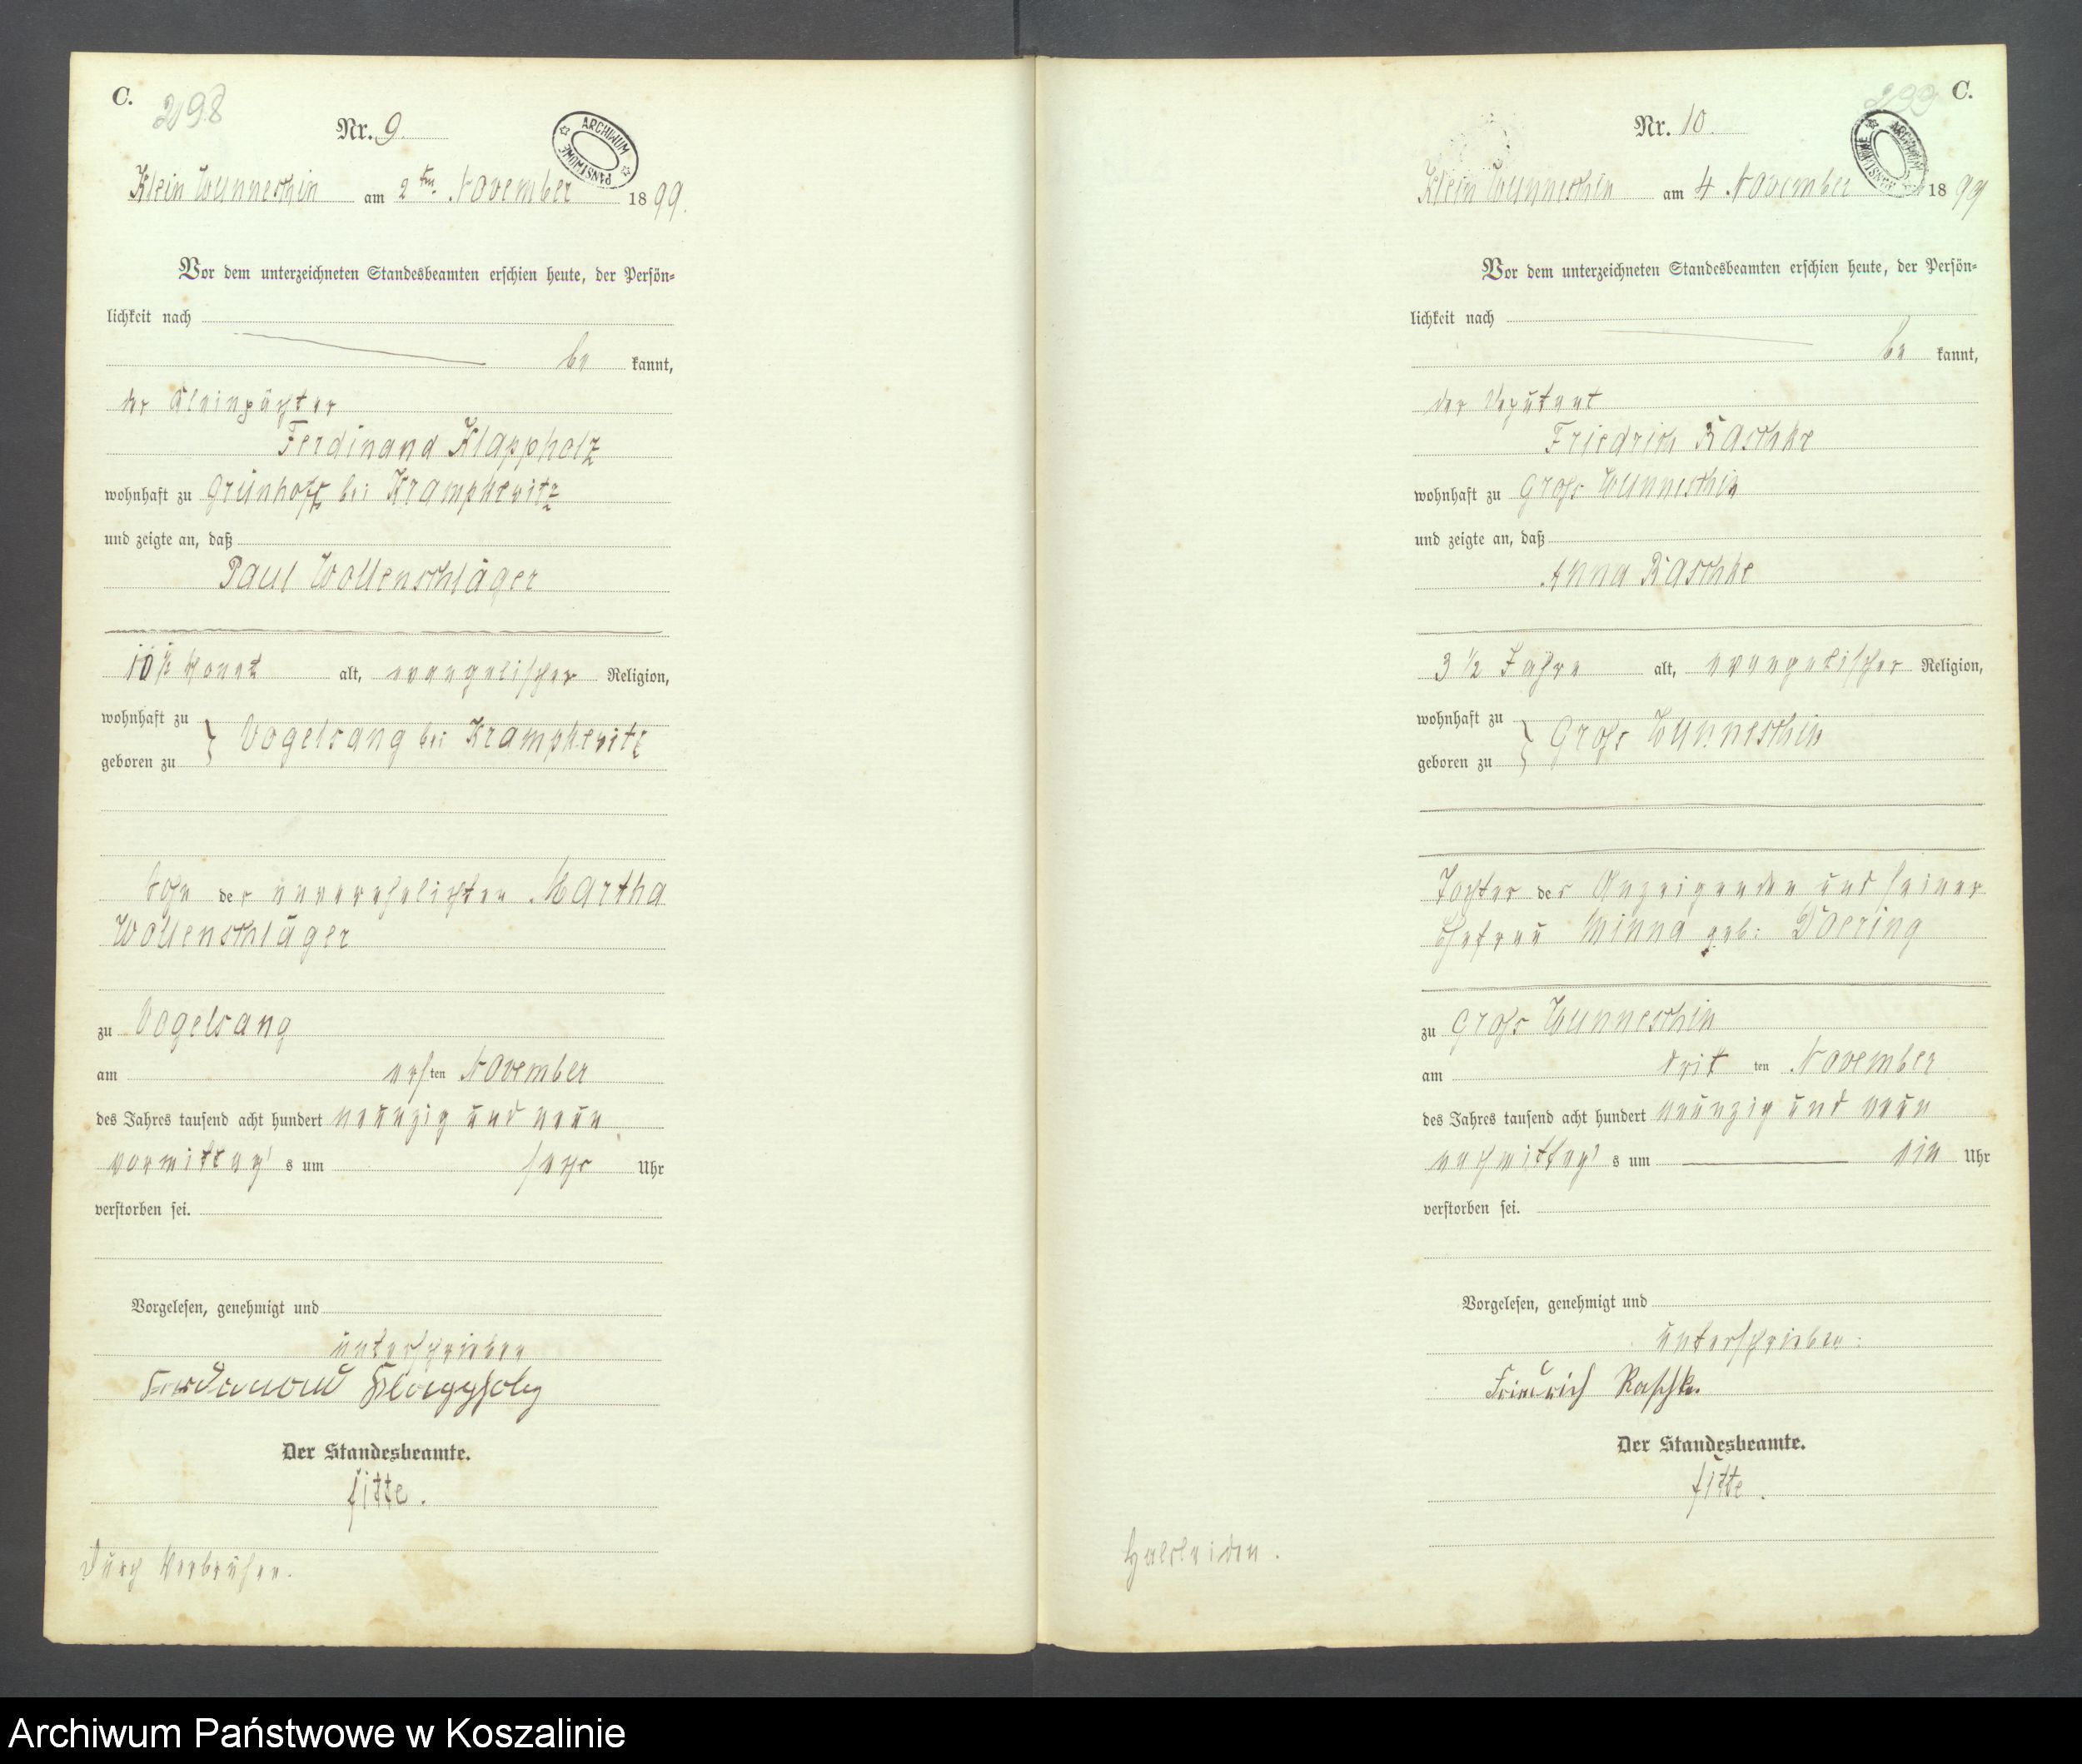 C.
298
Nr. 9.
ARCHIWUM PAŃSTWOWE
Klein Wunneschin am 2ten November 1899.
Vor dem unterzeichneten Standesbeamten erschien heute, der Persön-
lichkeit nach
be kannt,
der Kleinpächter
Ferdinand Klappholz
wohnhaft zu Grünhoff bei Krampkewitz
und zeigte an, daß
Paul Wollenschläger
10½ Monat alt, evangelischer Religion,
wohnhaft zu
Vogelsang bei Krampkewitz
geboren zu
Sohn der unverehelichten Martha
Wollenschläger
zu Vogelsang
am ersten November
des Jahres tausend acht hundert neunzig und neun
vormittags um sechs Uhr
verstorben sei.
Vorgelesen, genehmigt und
unterschrieben
Ferdinand Klappholz
Der Standesbeamte.
Durch Verbrühen.
C.
299
Nr. 10.
ARCHIWUM PAŃSTWOWE
Klein Wunneschin am 4 November 1899
Vor dem unterzeichneten Standesbeamten erschien heute, der Persön-
lichkeit nach
be kannt,
der Deputant
Friedrich Raschke
wohnhaft zu Gross Wunneschin
und zeigte an, daß
Anna Raschke
3 1/2 Jahre alt, evangelischer Religion,
wohnhaft zu
Gross Wunneschin
geboren zu
Tochter des Anzeigenden und seiner
Ehefrau Minna geb: Doering
zu Gross Wunneschin
am dritten November
des Jahres tausend acht hundert neunzig und neun
nachmittags um ein Uhr
verstorben sei.
Vorgelesen, genehmigt und
unterschrieben:
Friedrich Raschke
Der Standesbeamte.
Halsleiden.
Archiwum Państwowe w Koszalinie